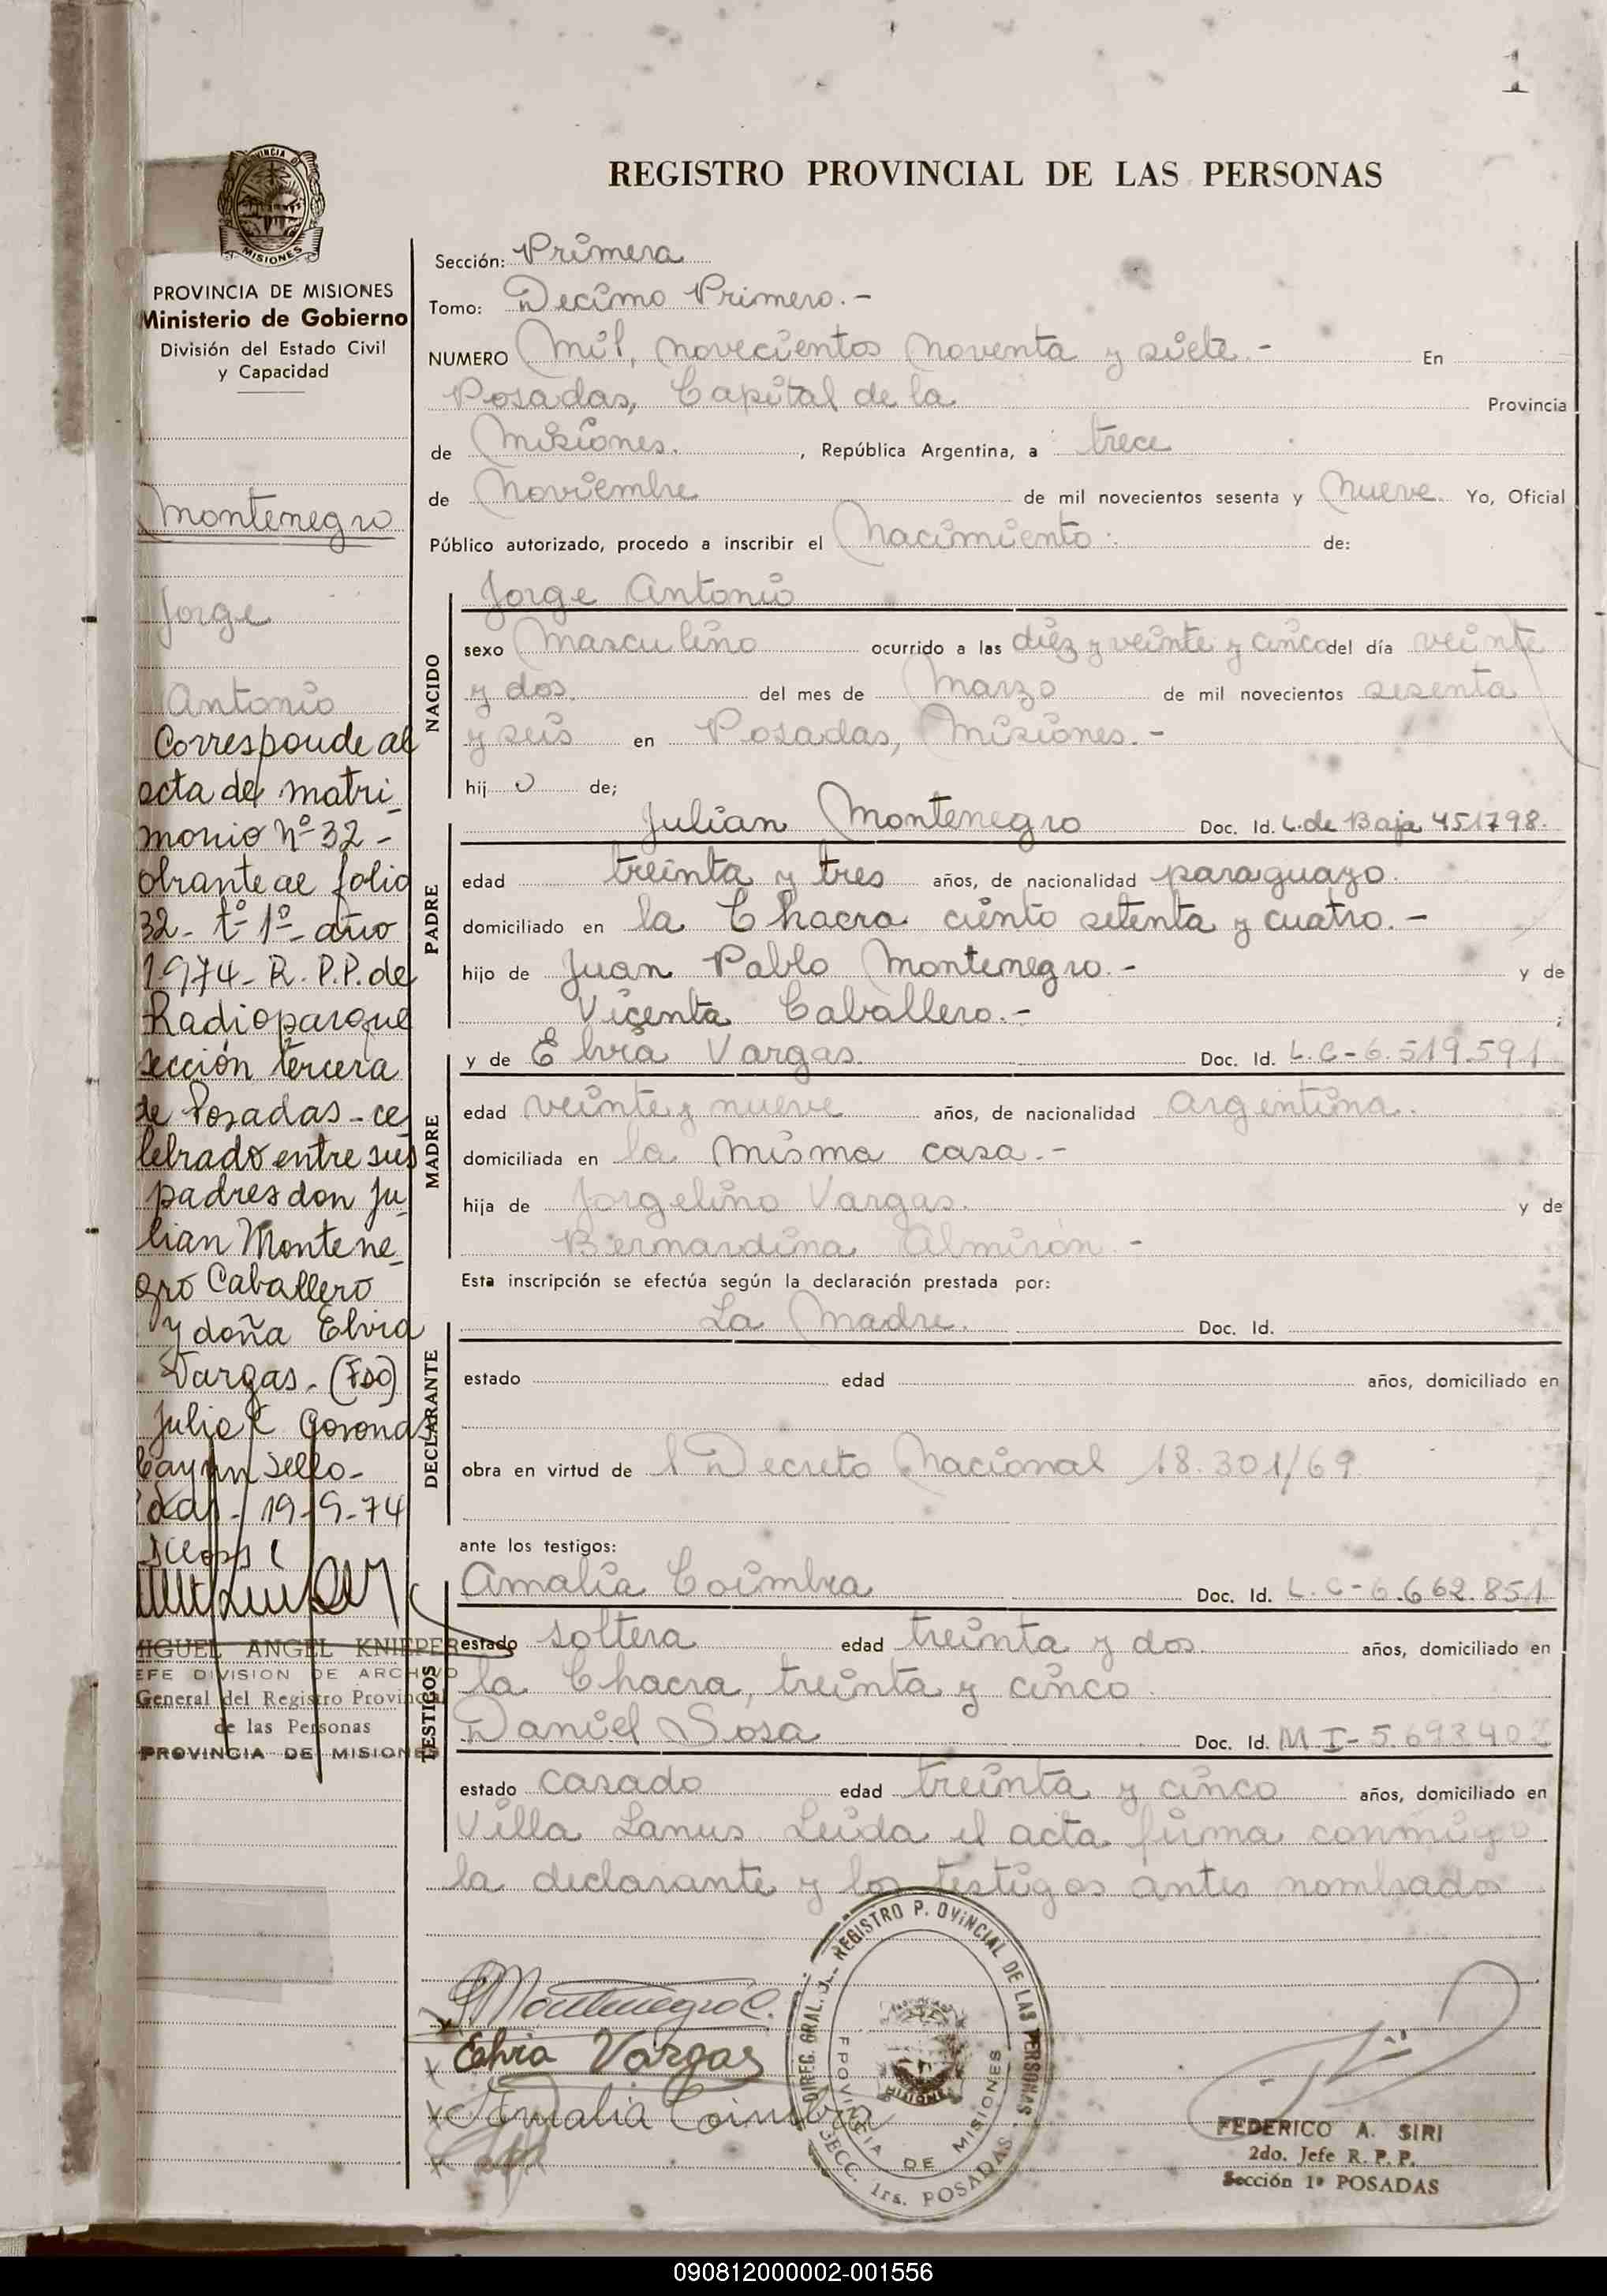 1
PROVINCIA DE MISIONES
PROVINCIA DE MISIONES
Ministerio de Gobierno
División del Estado Civil
y Capacidad
Montenegro
Jorge
Antonio
Corresponde al
acta de matri
monio Nº 32 -
obrante al folio
32 - tº 1º - año
1974 - R. P.P. de
Radioparque
sección tercera
de Posadas - ce
lebrado entre sus
padres don Ju
lian Montene
gro Caballero
y doña Elvia
Vargas. (Fdo)
Julio
Hay un sello -
19-9-74
MIGUEL ANGEL KNIEPER
JEFE DIVISION DE ARCHIVO
General del Registro Provincial
de las Personas
PROVINCIA DE MISIONES
REGISTRO PROVINCIAL DE LAS PERSONAS
Sección: Primera
Tomo: Decimo Primero. -
NUMERO Mil, novecientos noventa y siete. - En
Posadas, Capital de la Provincia
de Misiones. , República Argentina, a trece
de Noviembre de mil novecientos sesenta y Nueve. Yo, Oficial
Público autorizado, procedo a inscribir el Nacimiento de:
NACIDO
Jorge Antonio
sexo Masculino ocurrido a las diez y veinte y cinco del día veinte
y dos del mes de Marzo de mil novecientos sesenta
y seis en Posadas, Misiones. -
hij o de;
PADRE
Julian Montenegro Doc. Id. L. de Baja 451798.
edad treinta y tres años, de nacionalidad paraguayo.
domiciliado en la Chacra ciento setenta y cuatro. -
hijo de Juan Pablo Montenegro. - y de
Vicenta Caballero. - ;
MADRE
y de Elvia Vargas. Doc. Id. L. C - 6.519.591
edad veinte y nueve años, de nacionalidad Argentina.
domiciliada en la misma casa. -
hija de Jorgelino Vargas. y de
Bernardina Almirón. -
Esta inscripción se efectúa según la declaración prestada por:
DECLARANTE
La Madre. Doc. Id.
estado edad años, domiciliado en
obra en virtud de l Decreto Nacional 18.301/69
ante los testigos:
TESTIGOS
Amalia Coimbra Doc. Id. L. C - 6.662.851
estado soltera edad treinta y dos. años, domiciliado en
la Chacra, treinta y cinco.
Daniel Sosa Doc. Id. M I - 5.693.402
estado casado edad treinta y cinco años, domiciliado en
Villa Lanus. Leida el acta firma conmigo
la declarante y los testigos antes nombrados
Montenegro C.
Elvia Vargas
Amalia Coimbra
DIREC. GRAL. DEL REGISTRO P. OVINCIAL DE LAS PERSONAS
PROVINCIA DE MISIONES
MISIONES
SECC. 1ra. POSADAS
FEDERICO A. SIRI
2do. Jefe R. P. P.
Sección 1ª POSADAS
090812000002-001556